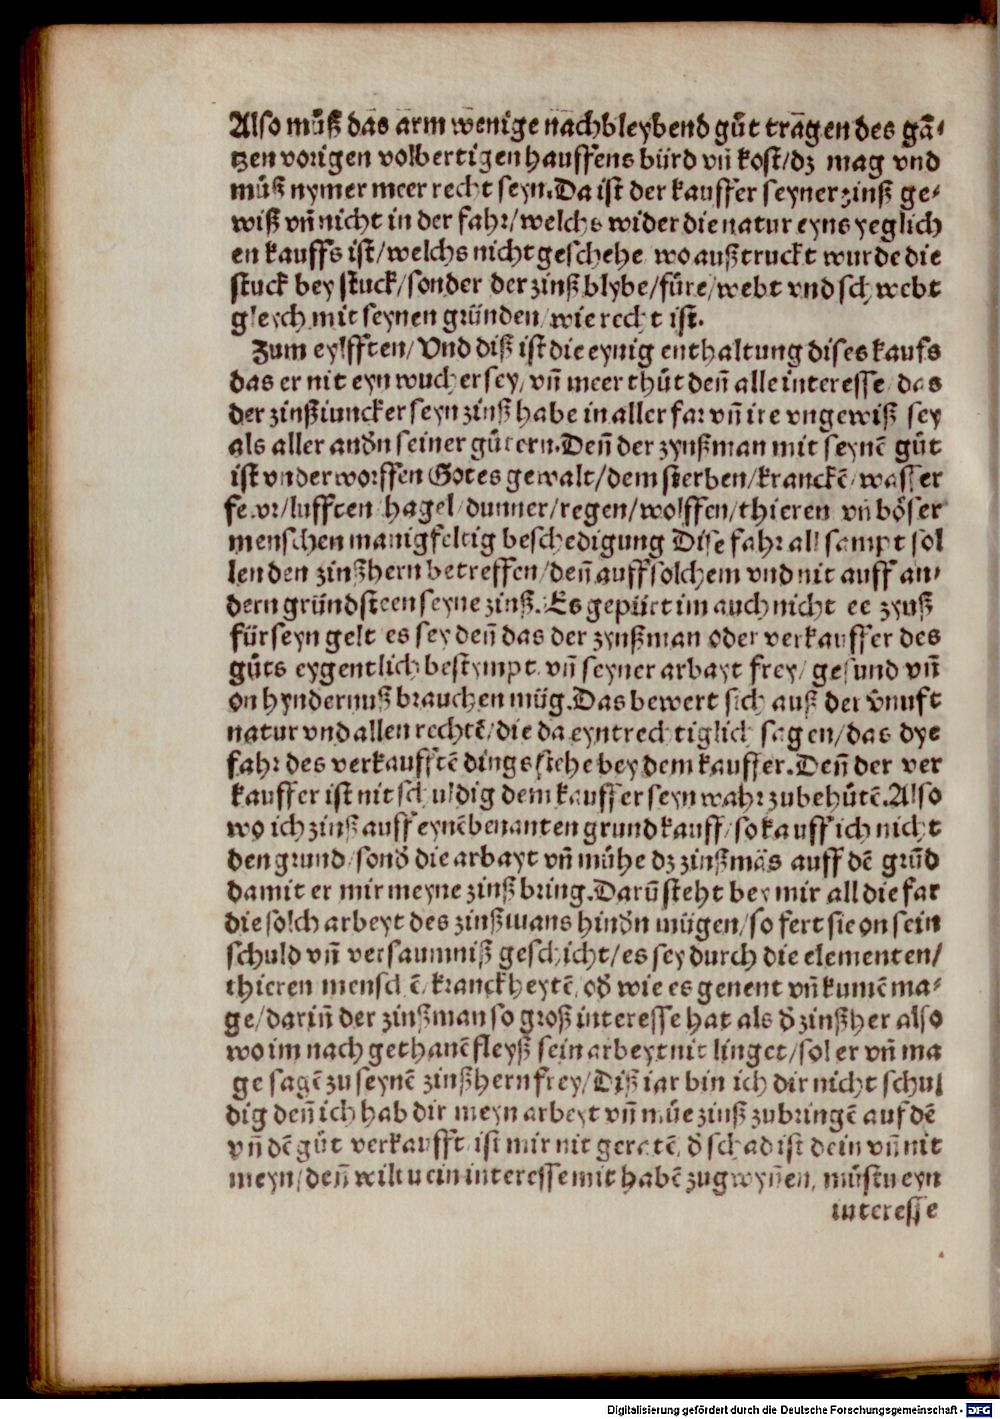 Also můß das arm wenige nachbleybend gůt tragen des gã⸗
tzen vorigen volbertigen hauffens bürd vñ kost/dz mag vnd
můß nymer meer recht seyn. Da ist der kauffer seyner zinß ge⸗
wiß vñ nicht in der fahr/welchs wider die natur eyns yeglich
en kauffs ist/welchs nicht geschehe wo außtruckt wurde die
stuck bey stuck/sonder der zinß blybe/füre/webt vnd schwebt
gleych mit seynen gründen/wie recht ist.
Zum eylfften/Vnd diß ist die eynig enthaltung dises kaufs
das er nit eyn wucher sey/vñ meer thůt deñ alle interesse/das
der zinßiuncker seyn zinß habe in aller far vñ ire vngewiß sey
als aller andn̄ seiner gůtern. Deñ der zynßman mit seynẽ gůt
ist vnderworffen Gotes gewalt/dem sterben/kranckẽ/wasser
fewr/lufften hagel/dunner/regen/wolffen/thieren vñ böser
menschen manigfeltig beschedigung Dise fahr all sampt sol
len den zinßhern betreffen/deñ auff solchem vnd nit auff an⸗
dern gründ steen seyne zinß. Es gepürt im auch nicht ee zynß
für seyn gelt es sey deñ das der zynßman oder verkauffer des
gůts eygentlich bestympt vñ seyner arbayt frey/gesund vñ
on hyndernuß brauchen müg. Das bewert sich auß der v̄nuft
natur vnd allen rechtẽ/die da eyntrechtiglich sagen/das dye
fahr des verkaufftẽ dings stehe bey dem kauffer. Deñ der ver
kauffer ist nit schuldig dem kauffer seyn wahr zubehůtẽ. Also
wo ich zinß auff eynẽ benanten grund kauff/so kauff ich nicht
den grund/sond̄ die arbayt vñ mühe dz zinßmãs auff dẽ grũd
damit er mir meyne zinß bring. Darũ steht bey mir all die far
die solch arbeyt des zinßmans hindn̄ mügen/so fert sie on sein
schuld vñ versaumniß geschicht/es sey durch die elementen/
thieren menschẽ/kranckheytẽ/od̄ wie es genent vñ kumẽ ma⸗
ge/dariñ der zinßman so groß interesse hat als d̄ zinßher also
wo im nach gethanẽ fleyß sein arbeyt nit linget/sol er vñ ma
ge sagẽ zu seynẽ zinßhern frey/Diß iar bin ich dir nicht schul
dig deñ ich hab dir meyn arbeyt vñ müe zinß zubringẽ auf dẽ
vñ dẽ gůt verkaufft ist mir nit geratẽ/d̄ schad ist dein vñ nit
meyn/deñ wiltu ein interesse mit habẽ zugwyñen, můstu eyn
interesse
Digitalisierung gefördert durch die Deutsche Forschungsgemeinschaft - DFG